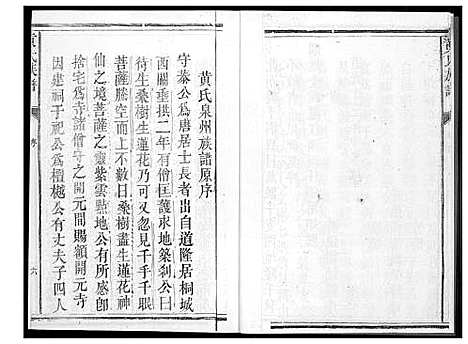 黃氏族譜
黃氏泉州族譜原序
守恭公爲唐居士長者出自道隆居桐城
西關垂拱二年有僧匡護求地築刹公曰
待生桑樹生蓮花乃可忽見千手千眼
菩薩騰空而上不數日桑樹盡生蓮花神
仙之境菩薩之靈紫雲點地公有所感卽
捨宅爲寺諸僧守之開元間賜額開元寺
因建祠于祀公爲檀樾公有丈夫子四人
黃氏族譜
序
六